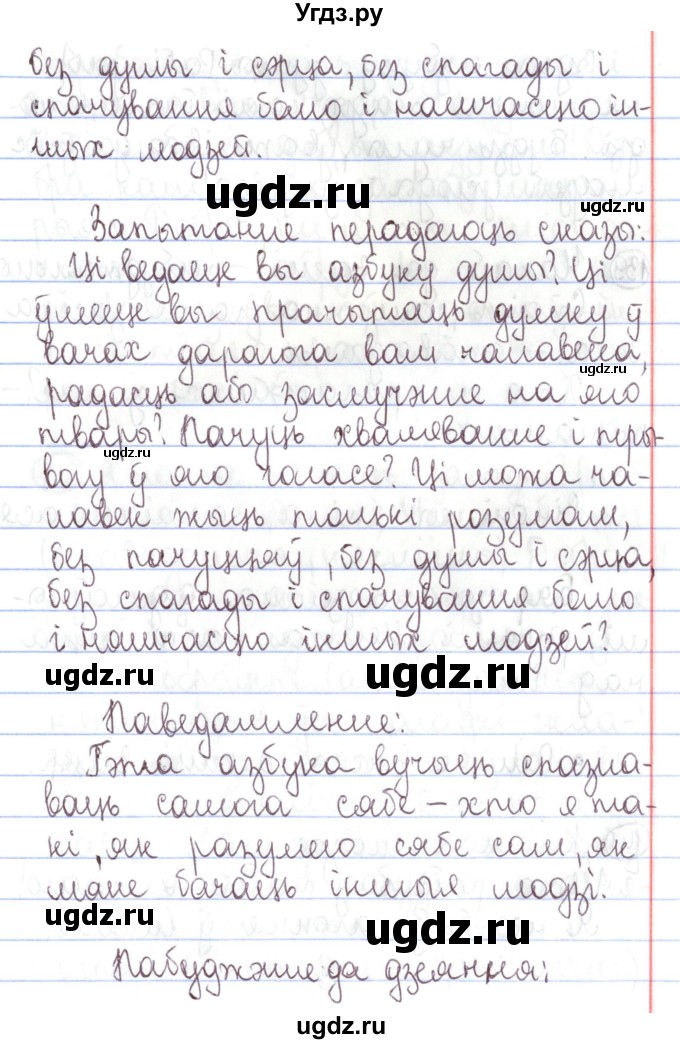 Угдз.ру
без душы і сэрца, без спагады і
спачування болю і няшчасцю ін-
шых людзей.
ugdz.ru
ugdz.ru
Запытанне перадаюць сказы:
Ці ведаеце вы азбуку душы? Ці
ўмееце вы прачытаць думку ў
вачах дарагога вам чалавека,
ugdz.ru
радасць або засмучэнне на яго
твары? Пачуць хваляванне і тры-
ugdz.ru
вогу ў яго голасе? Ці можа ча-
лавек жыць толькі розумам,
без пачуццяў, без душы і сэрца,
без спагады і спачування болю
і няшчасцю іншых людзей?
ugdz.ru
ugdz.ru
Паведамленне:
Гэта азбука вучыць спазна-
ваць самога сябе – хто я та-
кі, як разумею сябе сам, як
мяне бачаць іншыя людзі.
ugdz.ru
ugdz.ru
Пабуджэнне да дзеяння:
ugdz.ru